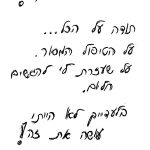 תודה על הכל...
על הטיפול המסור.
על שעזרת לי להגשים
חלום.
בלעדייך לא הייתי
עושה את זה!